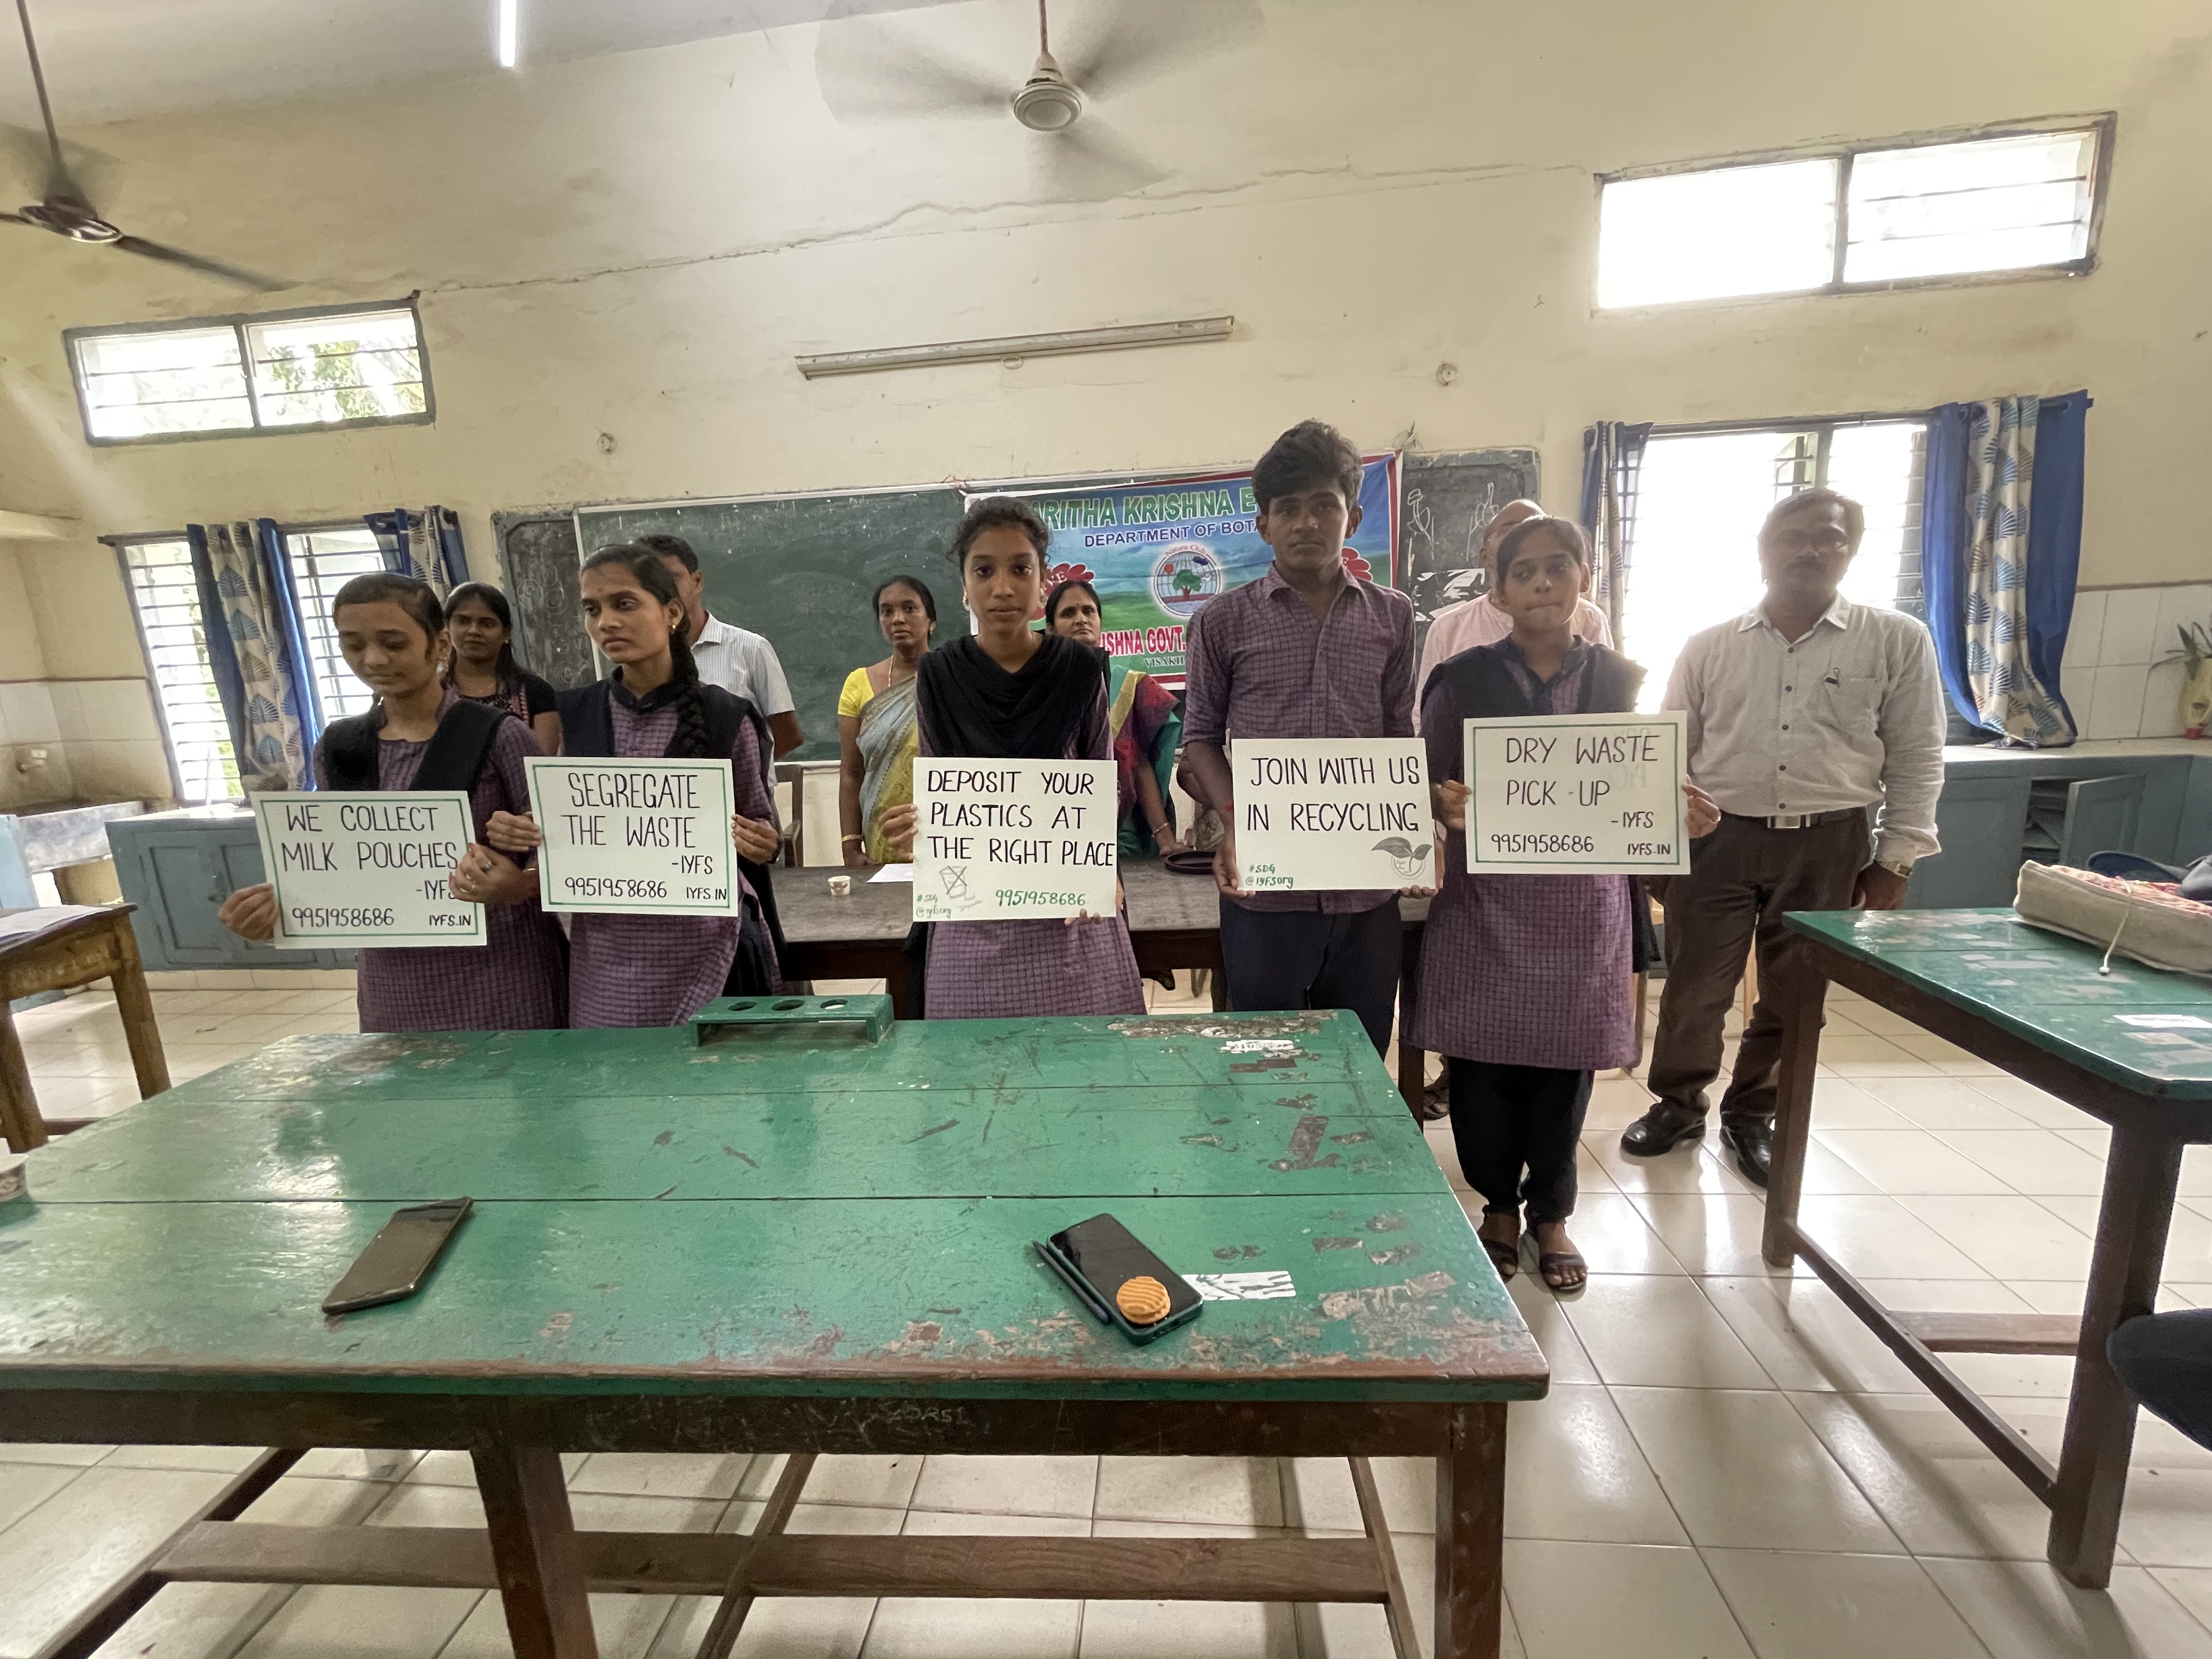 ARITHA KRISHNA E
DEPARTMENT OF BOTA
Nature Club
ISHNA GOVT.
VISAKH
WE COLLECT
MILK POUCHES
-IYFS
9951958686 IYFS.IN
SEGREGATE
THE WASTE
-IYFS
9951958686 IYFS.IN
DEPOSIT YOUR
PLASTICS AT
THE RIGHT PLACE
#SDG
@iyfsorg
9951958686
JOIN WITH US
IN RECYCLING
#SDG
@iyfsorg
DRY WASTE
PICK-UP
-IYFS
9951958686 IYFS.IN